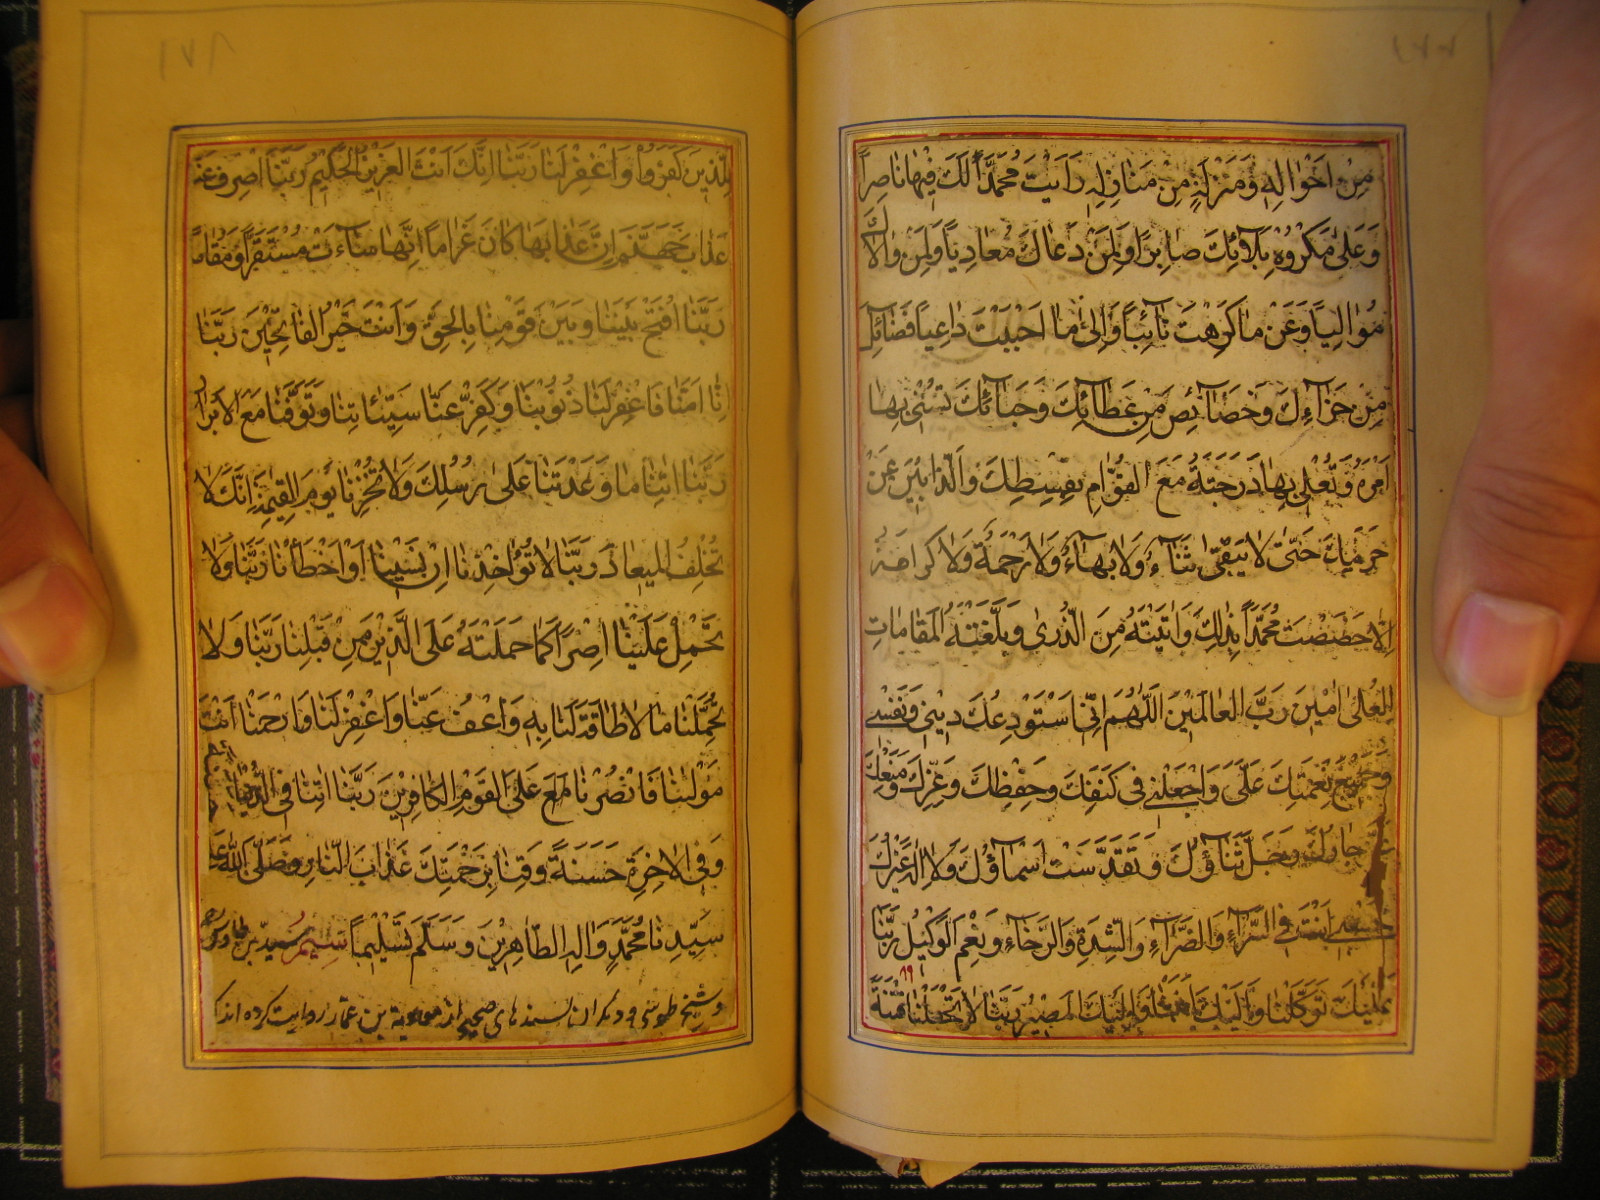 مِنْ اَحْوالِهِ وَمَنْزِلَةٍ مِنْ مَنازِلِهِ رَاَيْتَ مُحَمَّداً لَكَ فيها ناصِراً
وَعَلى مَكْرُوهِ بَلآئِكَ صابِراً وَلِمَنْ دَعاكَ مُعادِياً وَلِمَنْ والاكَ
مُوالِياً وَعَنْ ما كَرِهْتَ نآئِباً وَاِلى ما اَحْبَبْتَ داعِياً فَضآئِلَ
مِنْ جَزآءِكَ وَخَصآئِصَ مِنْ عَطآئِكَ وَحَبآئِكَ تُسْنى بِها
اَمْرَهُ وَتُعْلى بِها دَرَجَتَهُ مَعَ القُوّامِ بِقِسْطِكَ وَالذّابّينَ عَنْ
حَرَمِكَ حَتّى لا يَبْقى سَنآءٌ وَلا بَهآءٌ وَلا رَحْمَةٌ وَلا كَرامَةٌ
اِلاّ خَصَصْتَ مُحَمَّداً بِذلِكَ وَاتَيْتَهُ مِنَ الذُّرى وَبَلَّغْتَهُ المَقاماتِ
العُلى امينَ رَبَّ العالَمينَ اَللّهُمَّ اِنّى اَسْتَوْدِعُكَ دينى وَنَفْسى
وَجَميعَ نِعْمَتِكَ عَلَىَّ وَاجْعَلْنى فى كَنَفِكَ وَحِفْظِكَ وَعِزِّكَ وَمَنْعِكَ
عَزَّ جارُكَ وَجَلَّ ثَنآؤُكَ وَتَقَدَّسَتْ اَسْمآؤُكَ وَلا اِلهَ غَيْرُكَ
حَسْبى اَنْتَ فى السَّرّآءِ وَالضَّرّآءِ وَالشِّدَةِ وَالرَّخآءِ وَنِعْمَ الوَكيلُ رَبَّنا
عَلَيْكَ تَوَكَّلْنا وَاِلَيْكَ اَنَبْنا وَاِلَيْكَ المَصيرُ رَبَّنا لا تَجْعَلْنا فِتْنَةً
لِلَّذينَ كَفَرُوا وَاغْفِرْ لَنا رَبَّنا اِنَّكَ اَنْتَ العَزيزُ الحَكيمُ رَبَّنَا اصْرِفْ عَنّا
عَذابَ جَهَنَّمَ اِنَّ عَذابَها كانَ غَراماً اِنَّها سآءَتْ مُسْتَقَرّاً وَمُقاماً
رَبَّنَا افْتَحْ بَيْنَنا وَبَيْنَ قَوْمِنا بِالحَقِّ وَاَنْتَ خَيْرُ الفاتِحينَ رَبَّنا
اِنَّنا امَنّا فَاغْفِرْ لَنا ذُنُوبَنا وَكَفِّرْ عَنّا سَيِّئاتِنا وَتَوَفَّنا مَعَ الاَبْرارِ
رَبَّنا اتِنا ما وَعَدْتَنا عَلى رُسُلِكَ وَلا تُخْزِنا يَوْمَ القِيمَةِ اِنَّكَ لا
تُخْلِفُ الميعادَ رَبَّنا لا تُؤاخِذْنا اِنْ نَسينا اَوْ اَخْطَأْنا رَبَّنا وَلا
تَحْمِلْ عَلَيْنا اِصْراً كَما حَمَلْتَهُ عَلَى الَّذينَ مِنْ قَبْلِنا رَبَّنا وَلا
تُحَمِّلْنا ما لا طاقَةَ لَنا بِهِ وَاعْفُ عَنّا وَاغْفِرْ لَنا وَارْحَمْنا اَنْتَ
مَوْلينا فَانْصُرْنا مَعَ عَلَى القَوْمِ الكافِرينَ رَبَّنا اتِنا فى الدُّنْيا حَسَنَةً
وَفى الاخِرَةِ حَسَنَةً وَقِنا بِرَحْمَتِكَ عَذابَ النّارِ وَصَلَّى اللهُ عَلى
سَيِّدِنا مُحَمَّدٍ وَالِهِ الطّاهِرينَ وَسَلَّمَ تَسْليماً سيم سيد بن طاوس
و شيخ طوسى و ديگران بسندهاى صحيح از معاوية بن عمار روايت كرده اند كه